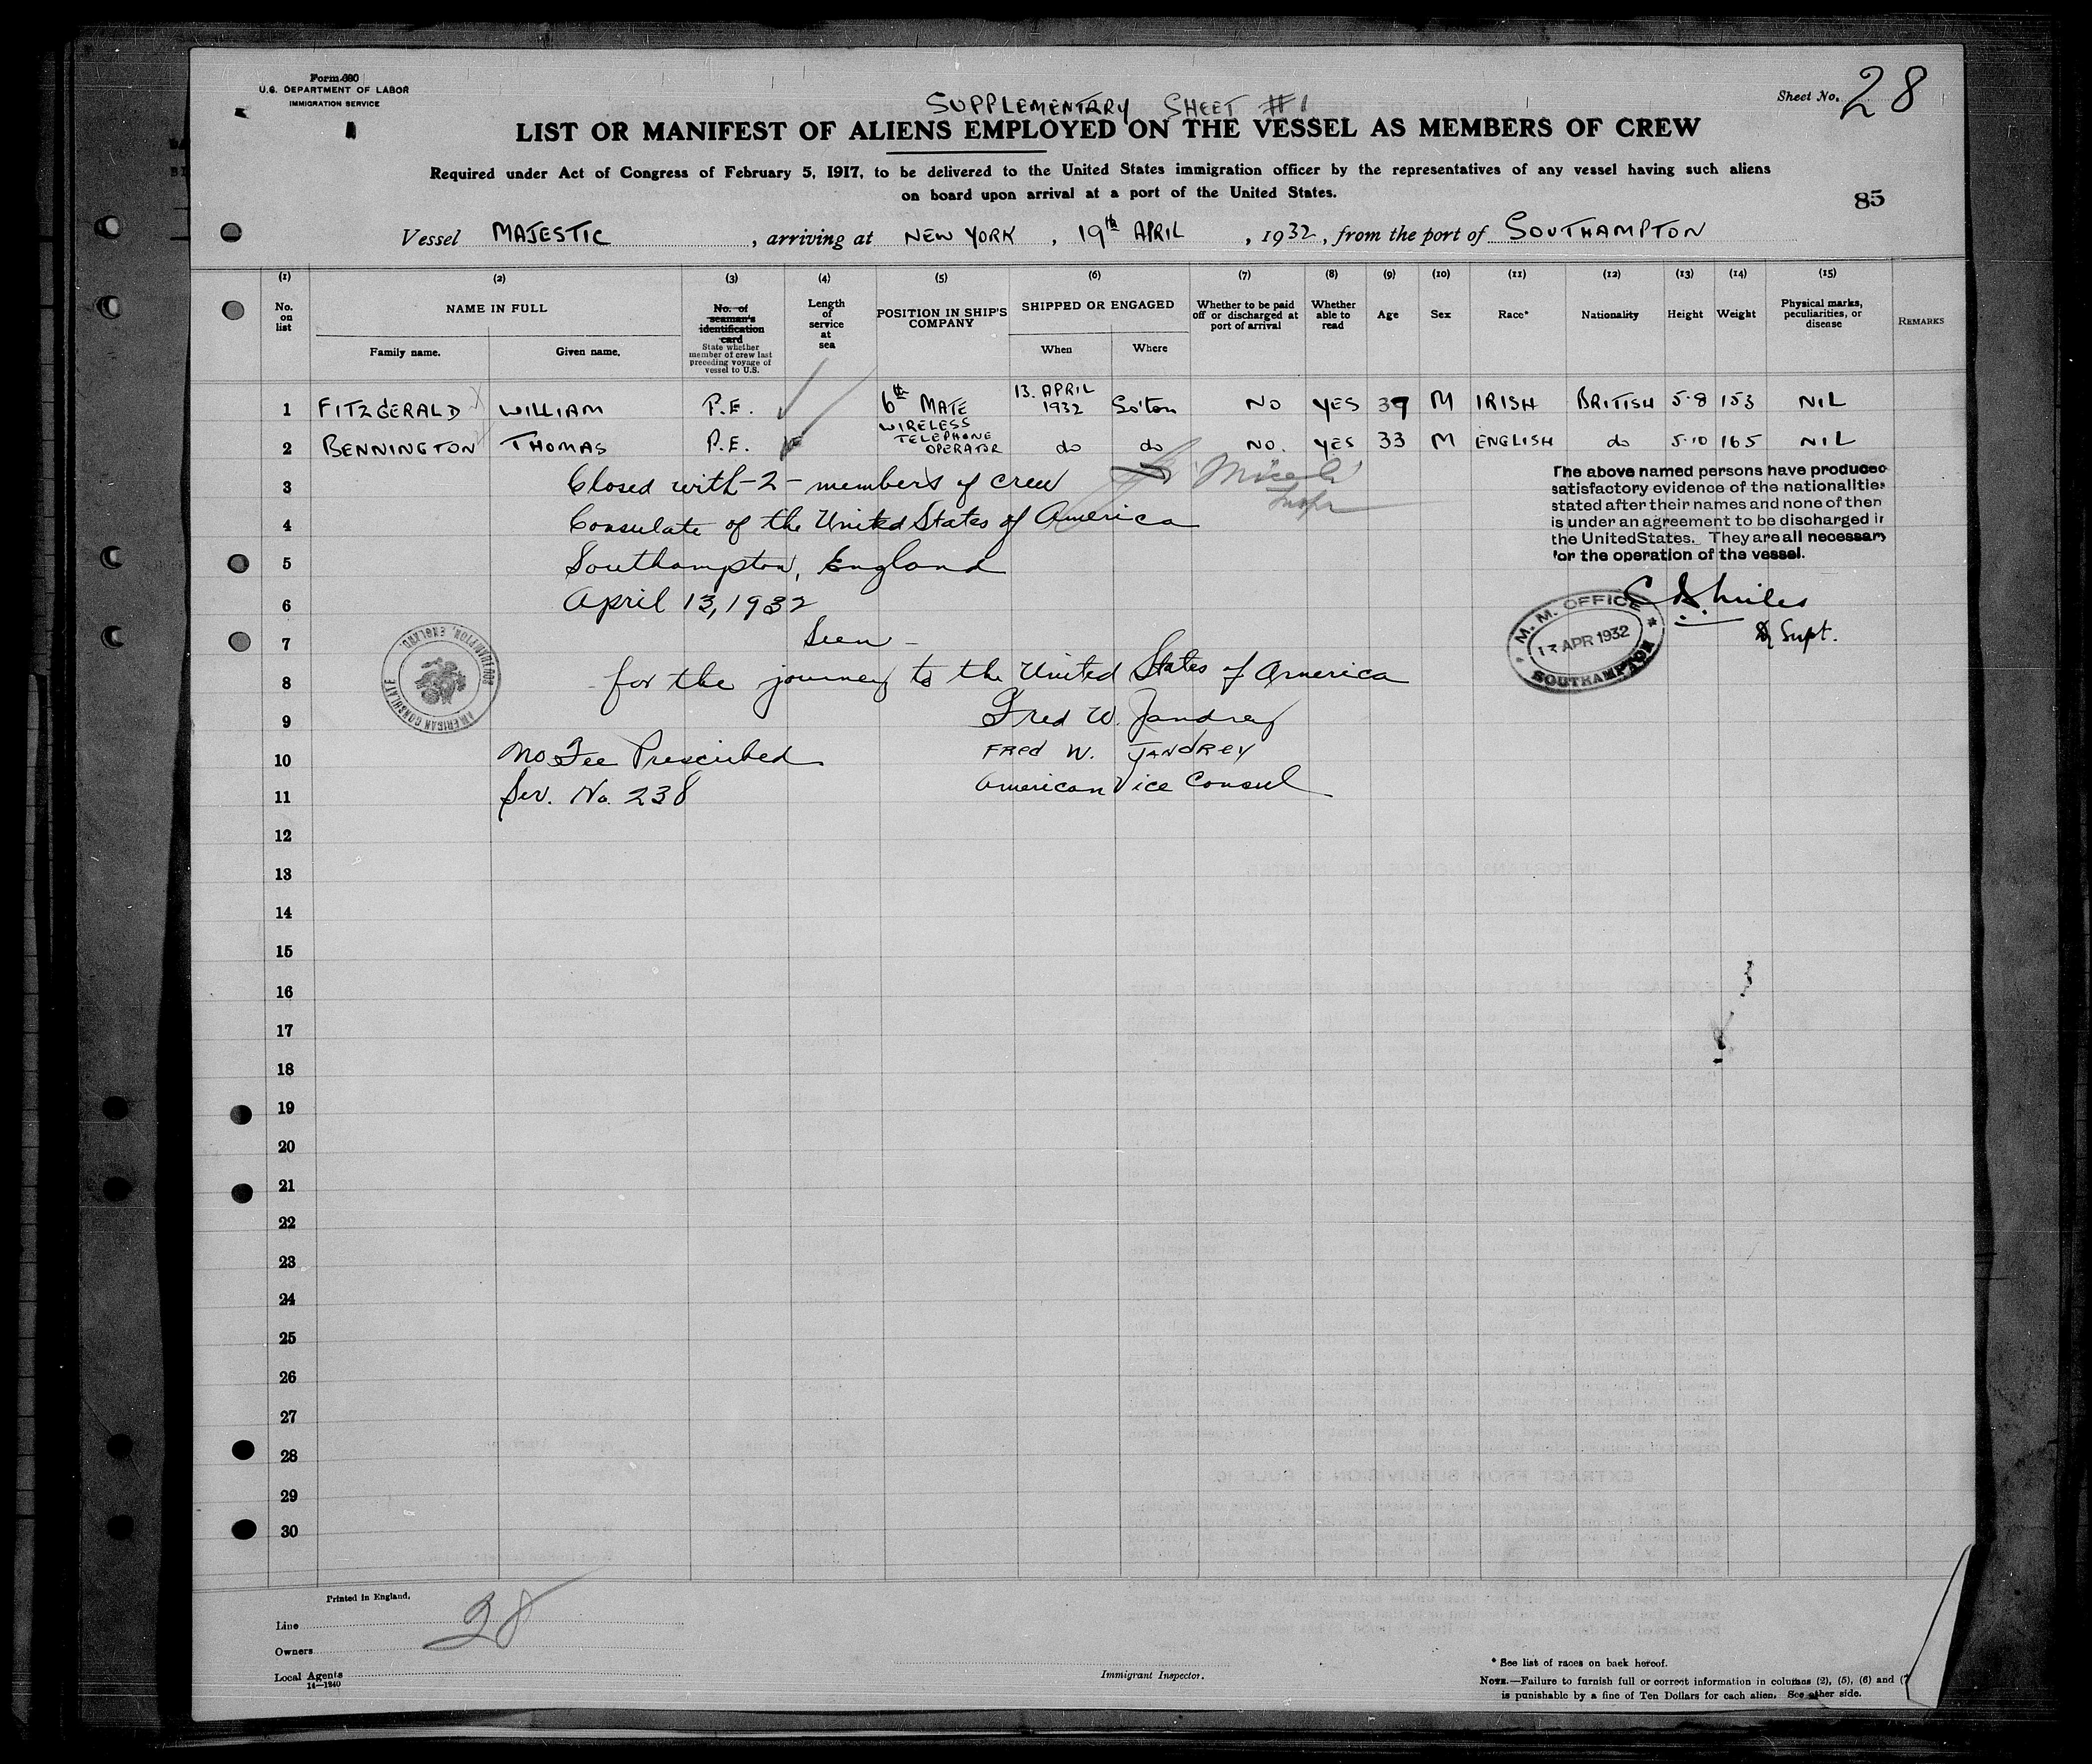 Form 680
U.S. DEPARTMENT OF LABOR
IMMIGRATION SERVICE
Sheet No. 28
SUPPLEMENTARY SHEET #1
LIST OR MANIFEST OF ALIENS EMPLOYED ON THE VESSEL AS MEMBERS OF CREW
Required under Act of Congress of February 5, 1917, to be delivered to the United States immigration officer by the representatives of any vessel having such aliens
on board upon arrival at a port of the United States.
85
Vessel MAJESTIC, arriving at NEW YORK, 19th APRIL, 1932, from the port of SOUTHAMPTON
(1) (2) (3) (4) (5) (6) (7) (8) (9) (10) (11) (12) (13) (14) (15)
No. on list
NAME IN FULL
Family name.
Given name.
No. of seaman's identification card
State whether member of crew last preceding voyage of vessel to U.S.
Length of service at sea
POSITION IN SHIP'S COMPANY
SHIPPED OR ENGAGED
When
Where
Whether to be paid off or discharged at port of arrival
Whether able to read
Age
Sex
Race*
Nationality
Height
Weight
Physical marks, peculiarities, or disease
REMARKS
1 FITZGERALD WILLIAM P.E. 6th MATE 13. APRIL 1932 So'ton NO YES 39 M IRISH BRITISH 5·8 153 NIL
2 BENNINGTON THOMAS P.E. WIRELESS TELEPHONE OPERATOR do do NO. YES 33 M ENGLISH do 5·10 165 NIL
3 Closed with -2- members of crew
4 Consulate of the United States of America
5 Southampton, England
6 April 13, 1932
7 Seen -
8 for the journey to the United States of America
9 Fred W. Jandrey
10 No Fee Prescribed FRED W. JANDREY
11 Ser. No. 238 American Vice Consul
The above named persons have produced
satisfactory evidence of the nationalities
stated after their names and none of then
is under an agreement to be discharged in
the United States. They are all necessary
for the operation of the vessel.
Supt.
M. M. OFFICE
13 APR 1932
SOUTHAMPTON
AMERICAN CONSULATE
SOUTHAMPTON, ENGLAND.
12
13
14
15
16
17
18
19
20
21
22
23
24
25
26
27
28
29
30
Printed in England.
28
Line
Owners
Local Agents
14—1240
Immigrant Inspector.
* See list of races on back hereof.
NOTE.—Failure to furnish full or correct information in columns (2), (5), (6) and (7
is punishable by a fine of Ten Dollars for each alien. See other side.